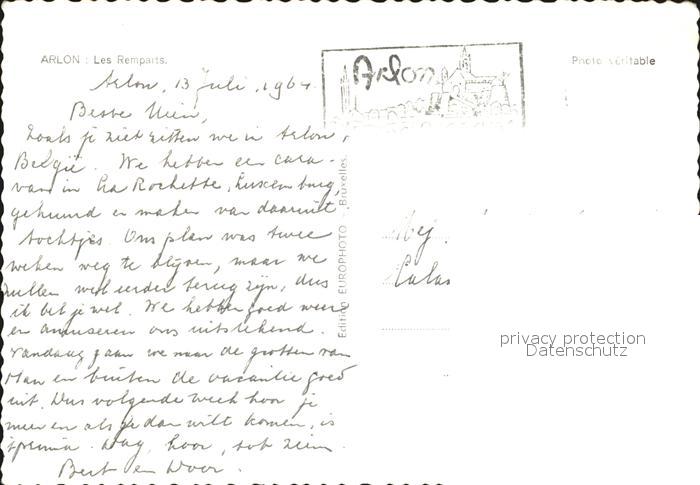 ARLON : Les Remparts.
Arlon
Photo véritable
Arlon, 13 Juli, 1964.
Beste Mien,
Zoals je ziet zitten we in Arlon,
België. We hebben een cara-
van in La Rochette, Luxemburg,
gehuurd en maken van daaruit
tochtjes. Ons plan was twee
weken weg te blijven, maar we
zullen wel eerder terug zijn, dus
ik bel je wel. We hebben goed weer
en amuseren ons uitstekend.
Vandaag gaan we naar de grotten van
Han en buiten de vacantie goed
uit. Dus volgende week hoor je
meer en als je dan wilt komen, is
't prima. Dag, hoor, tot ziens.
Bert en Door.
Edition EUROPHOTO, Bruxelles.
Mej.
privacy protection
Datenschutz